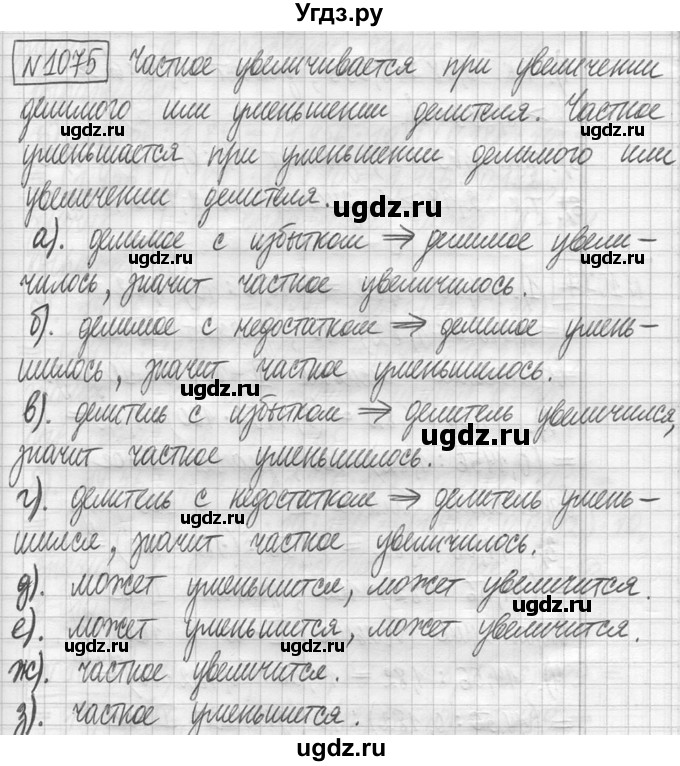 Угдз.ру
№1075 Частное увеличивается при увеличении
делимого или уменьшении делителя. Частное
ugdz.ru ugdz.ru
уменьшается при уменьшении делимого или
увеличении делителя.
ugdz.ru
а). делимое с избытком ⇒ делимое увели-
ugdz.ru ugdz.ru
чилось, значит частное увеличилось.
б). делимое с недостатком ⇒ делимое умень-
шилось, значит частное уменьшилось.
ugdz.ru
в). делитель с избытком ⇒ делитель увеличился,
ugdz.ru
значит частное уменьшилось.
г). делитель с недостатком ⇒ делитель умень-
ugdz.ru
шился, значит частное увеличилось.
д). может уменьшится, может увеличится.
ugdz.ru
е). может уменьшится, может увеличится.
ж). частное увеличится.
з). частное уменьшится.
ugdz.ru